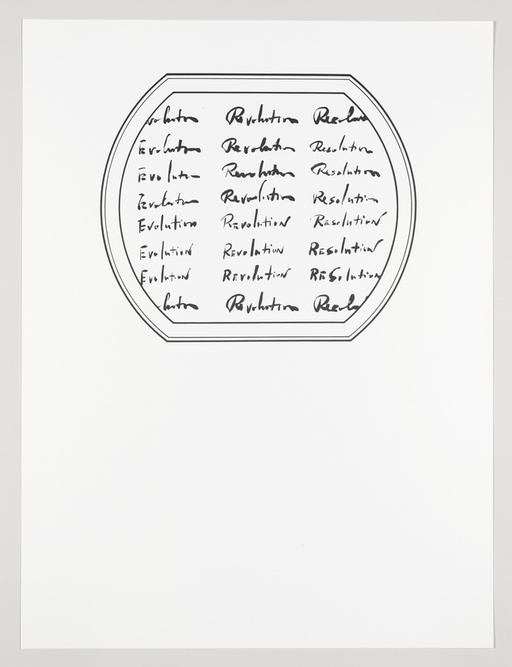 Evolution Revolution Resolution
Evolution Revolution Resolution
Evolution Revolution Resolution
Evolution Revolution Resolution
Evolution Revolution Resolution
Evolution Revolution Resolution
Evolution REvolution RESolution
lution Revolution Resolu